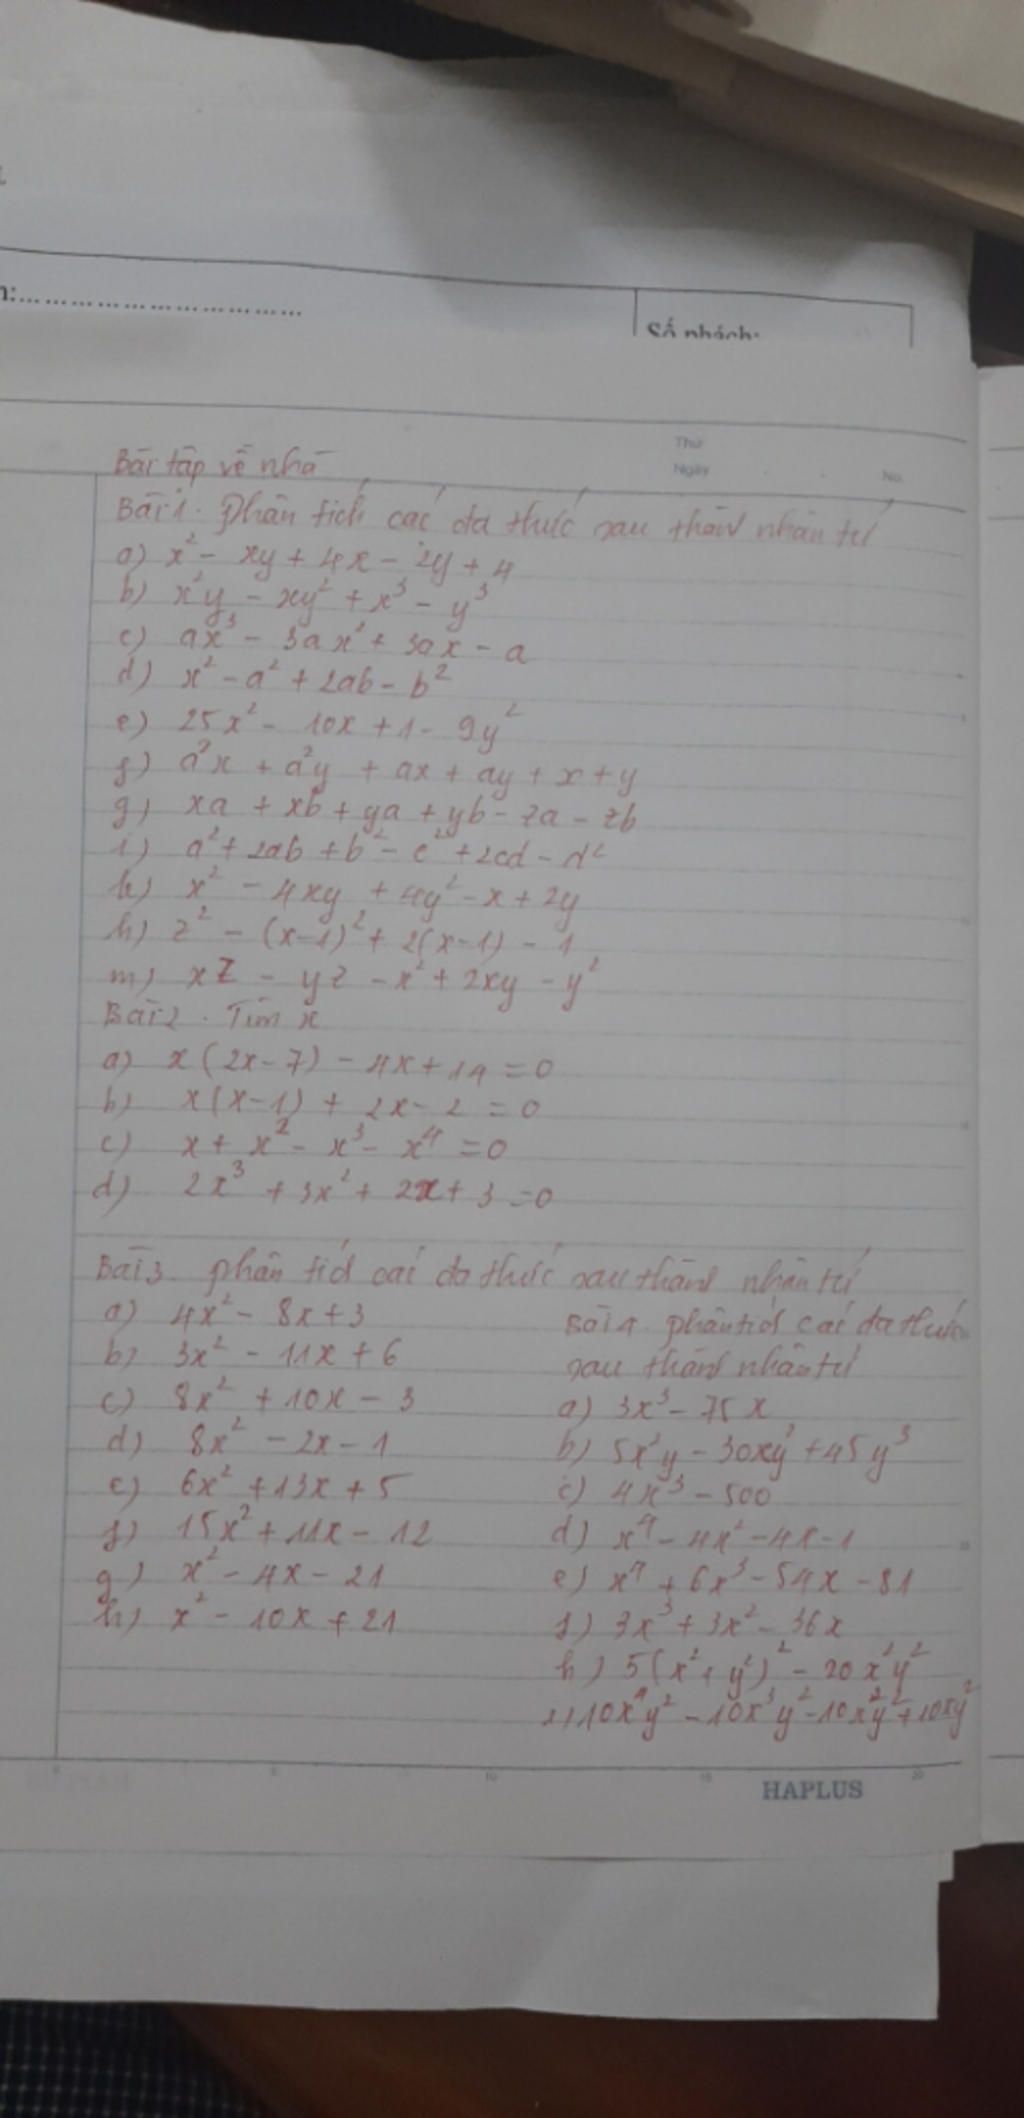 Số nhánh:
Thứ
Ngày
No.
Bài tập về nhà
Bài 1. Phân tích các đa thức sau thành nhân tử
a) x² - xy + 4x - 2y + 4
b) x²y - xy² + x³ - y³
c) ax³ - 3ax² + 3ax - a
d) x² - a² + 2ab - b²
e) 25x² - 10x + 1 - 9y²
f) a²x + a²y + ax + ay + x + y
g) xa + xb + ya + yb - za - zb
i) a² + 2ab + b² - c² + 2cd - d²
k) x² - 4xy + 4y² - x + 2y
h) z² - (x-1)² + 2(x-1) - 1
m) xz - yz - x² + 2xy - y²
Bài 2. Tìm x
a) x(2x-7) - 4x + 14 = 0
b) x(x-1) + 2x - 2 = 0
c) x + x² - x³ - x⁴ = 0
d) 2x³ + 3x² + 2x + 3 = 0
Bài 3. phân tích các đa thức sau thành nhân tử
a) 4x² - 8x + 3
b) 3x² - 11x + 6
c) 8x² + 10x - 3
d) 8x² - 2x - 1
e) 6x² + 13x + 5
f) 15x² + 11x - 12
g) x² - 4x - 21
h) x² - 10x + 21
Bài 4. phân tích các đa thức
sau thành nhân tử
a) 3x³ - 75x
b) 5x²y - 30xy² + 45y³
c) 4x³ - 500
d) x⁴ - 4x² - 4x - 1
e) x⁴ + 6x³ - 54x - 81
f) 3x³ + 3x² - 36x
h) 5(x² + y²)² - 20x²y²
i) 10x⁴y² - 10x³y² - 10x²y² + 10xy²
0 5 10 15 20
HAPLUS